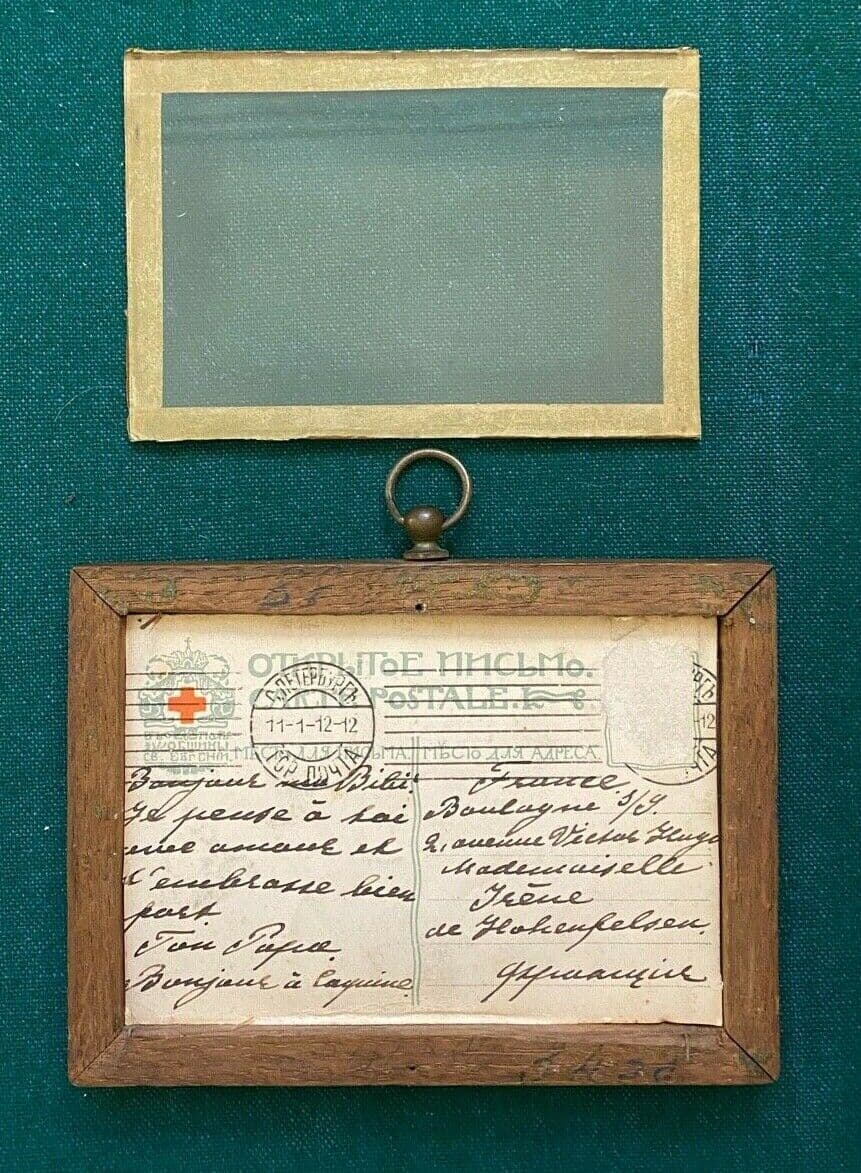 ОТКРЫТОЕ ПИСЬМО.
POSTALE.
С.ПЕТЕРБУРГЪ
11-1-12-12
ГОР. ПОЧТА
РГЪ
12
ЧТА
ОБЩИНЫ
СВ. ЕВГЕНІИ.
МѢСТО ДЛЯ ПИСЬМА.
МѢСТО ДЛЯ АДРЕСА
Bonjour ma Bibi.
Je pense à toi
avec amour et
t'embrasse bien
fort
Ton Papa
Bonjour à
France.
Boulogne s/S.
2, avenue Victor Hugo
Mademoiselle
Irène
de Hohenfelsen.
Франція